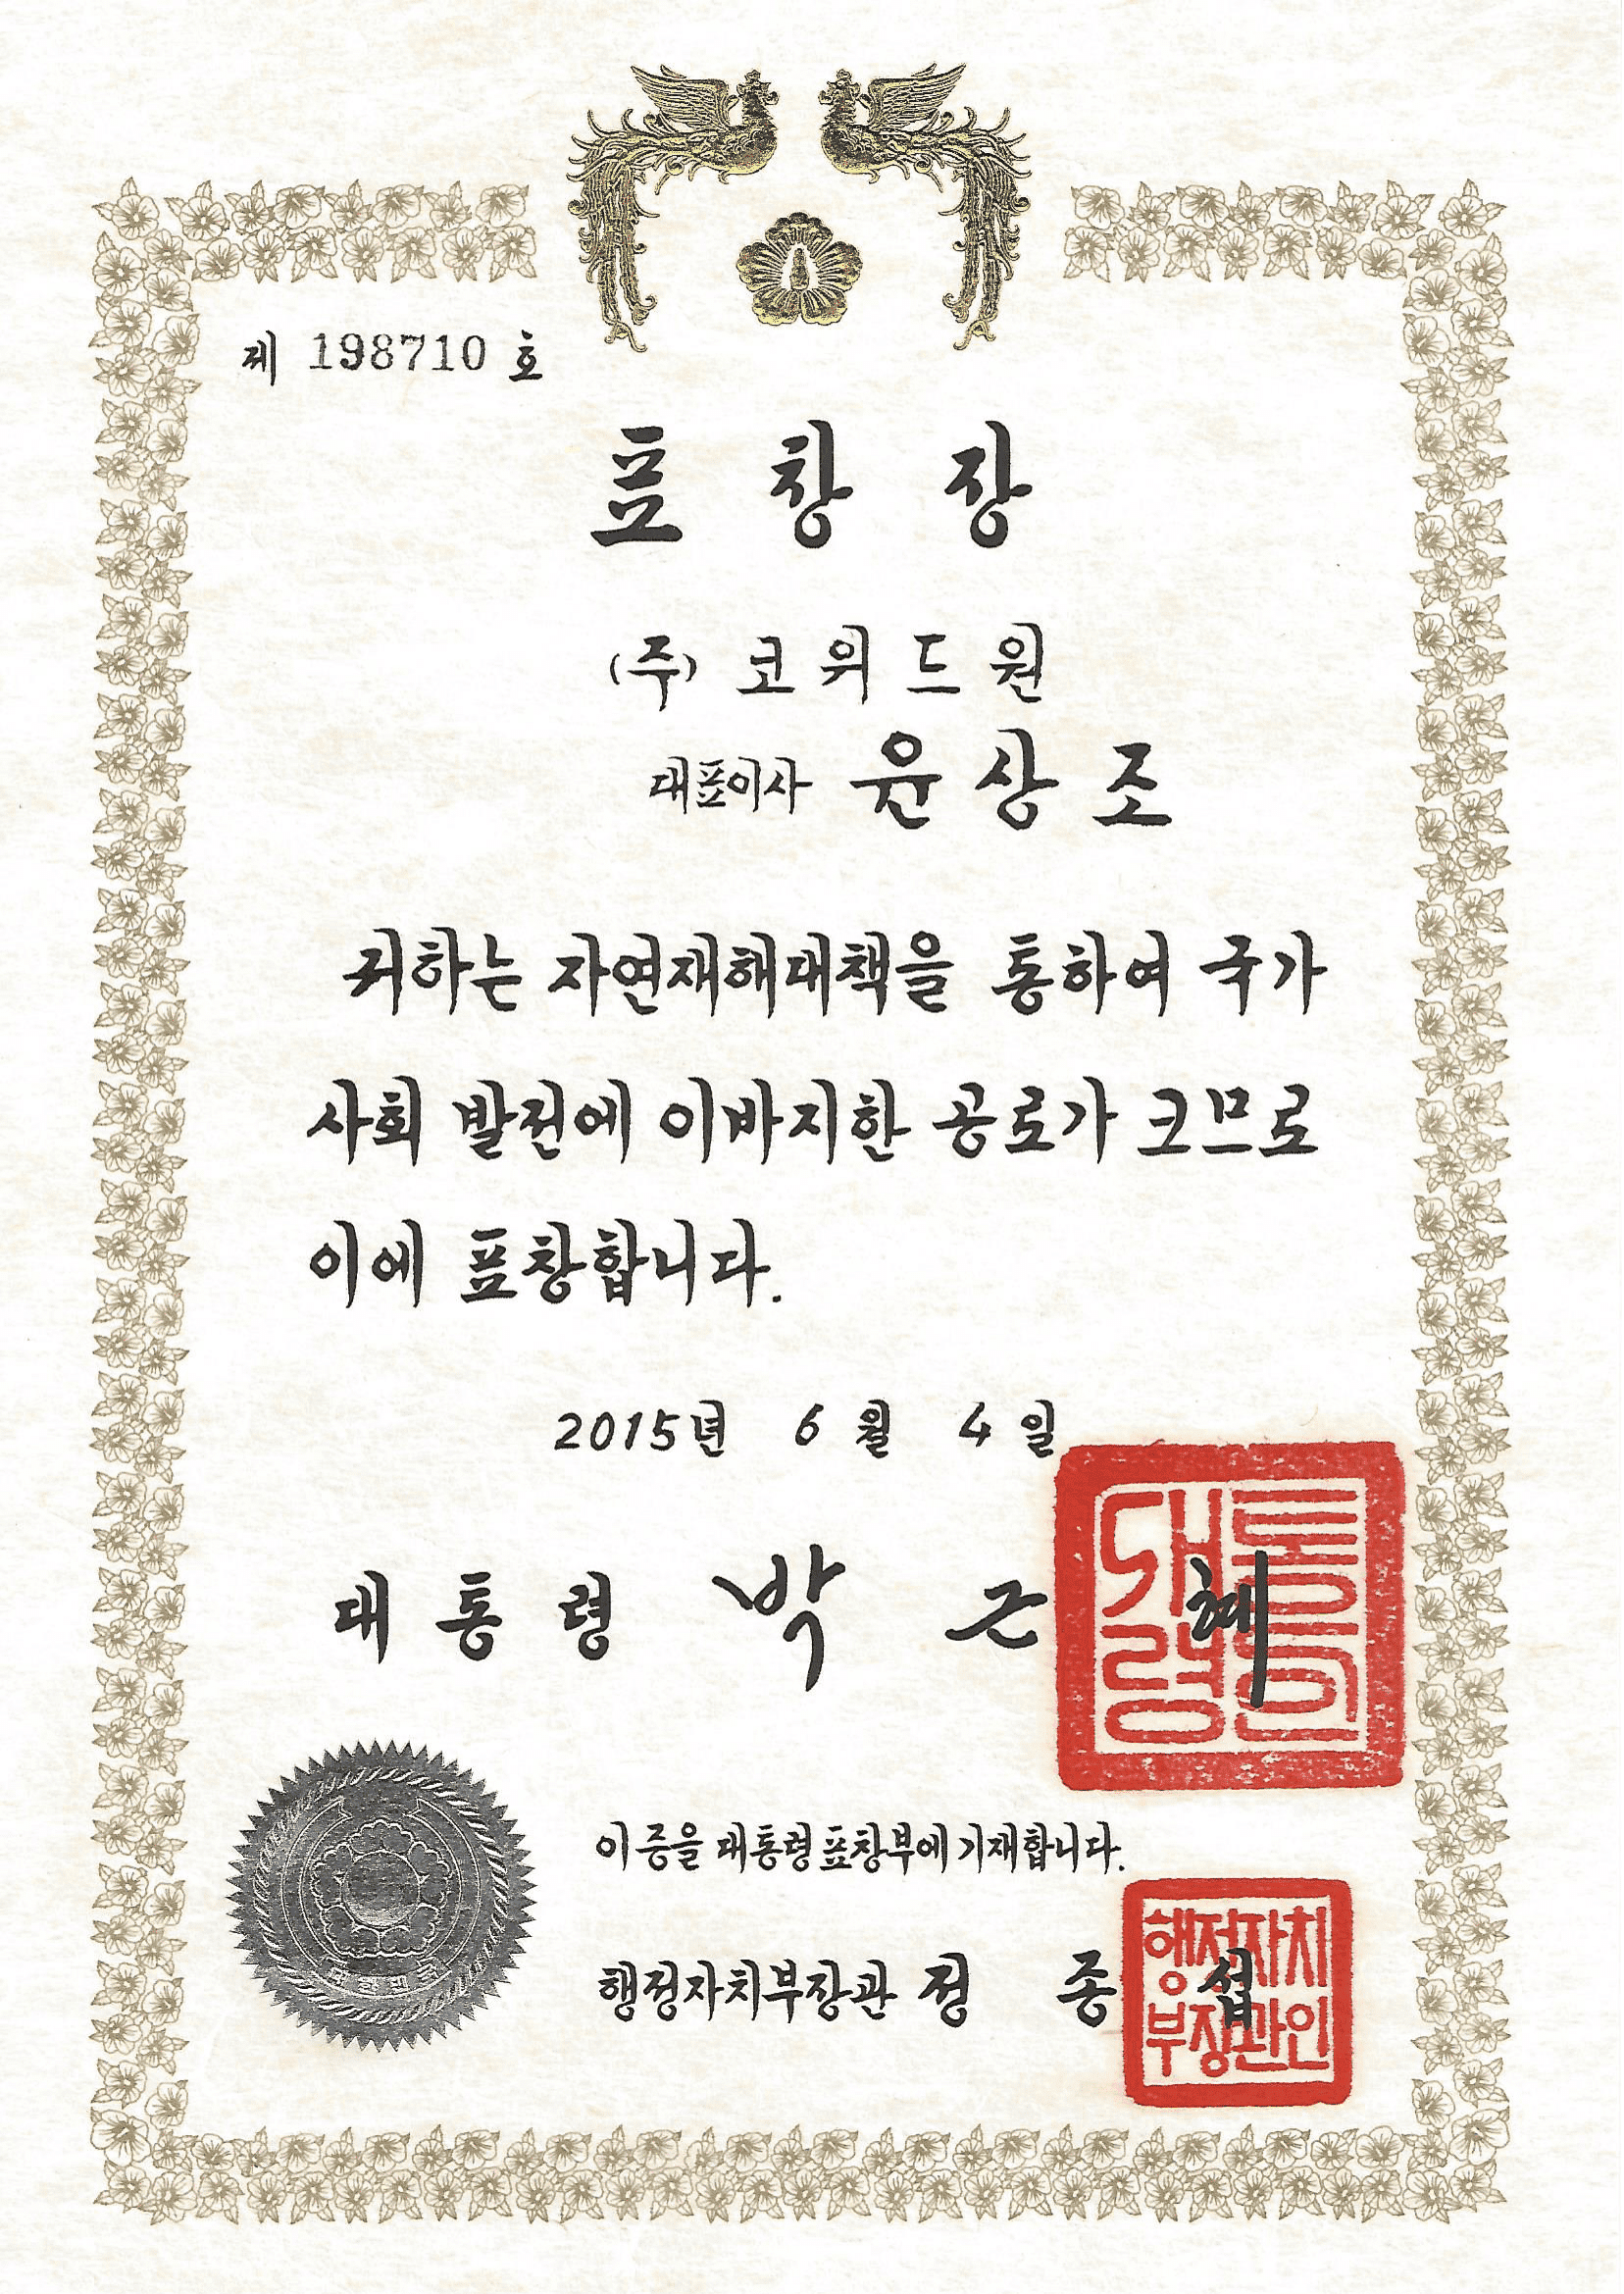 제 198710 호
표 창 장
(주) 코위드원
대표이사 윤상조
귀하는 자연재해대책을 통하여 국가
사회 발전에 이바지한 공로가 크므로
이에 표창합니다.
2015년 6월 4일
대통령 박근혜
대통령인
이 증을 대통령표창부에 기재합니다.
행정자치부장관 정종섭
행정자치
부장관인